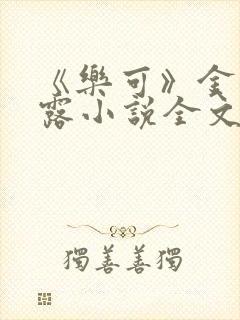 《樂可》金
露小說全文
獨善善獨